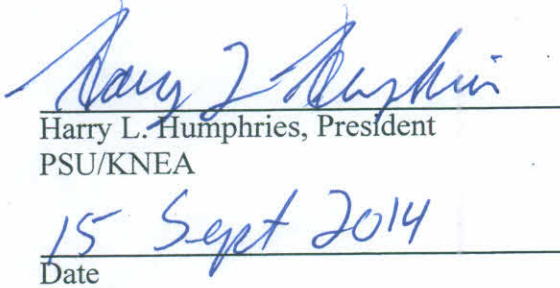 Harry L. Humphries
Harry L. Humphries, President
PSU/KNEA
15 Sept 2014
Date